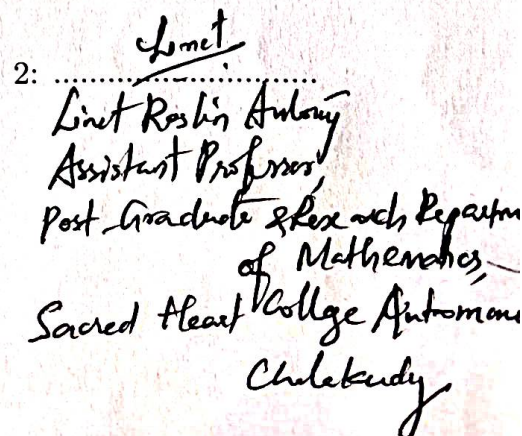 Linet
2: ..............................
Linet Roslin Antony
Assistant Professor,
Post Graduate & Research Departm
of Mathematics,
Sacred Heart College Autonomou
Chalakudy